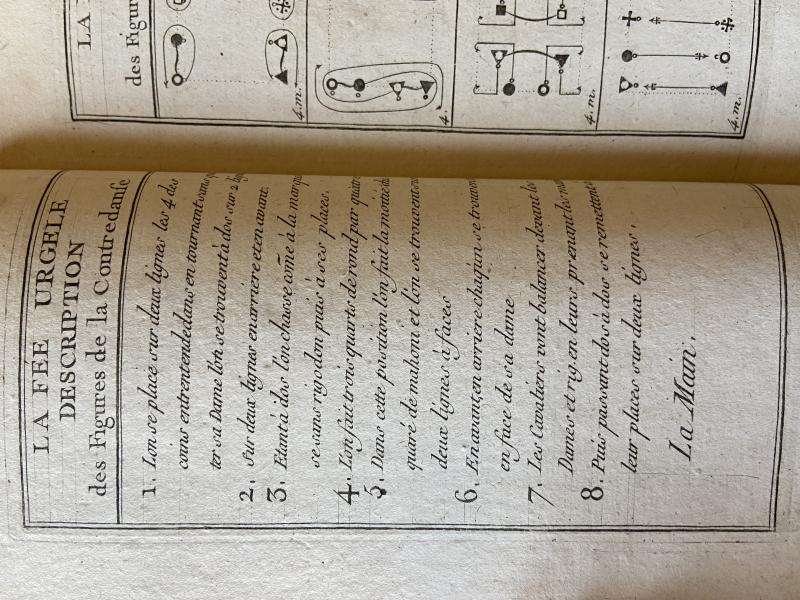 LA FÉE URGELE
DESCRIPTION
des Figures de la Contredanse
1. Lon se place sur deux lignes les 4 des
coins entrentdedans en tournant sans
ter sa Dame lon se trouvent à dos sur 2
2. Sur deux lignes en arriere et en avant.
3. Etant à dos l'on chasse come à la
se sans rigodon puis à ses places.
4. L'on fait trois quarts de rond par quatre
5. Dans cette position l'on fait la moitié
quaré de mahoni et l'on se trouvent
deux lignes à faces
6. En avant, en arriere chaqun se trouvent
en face de sa dame
7. Les Cavaliers vont balancer devant les
Dames et rig en leurs prenant les
8. Puis passant dos à dos se remettent
leur places sur deux lignes.
La Main.
LA
des Figur
4.m.
4.
4.m.
4.m.